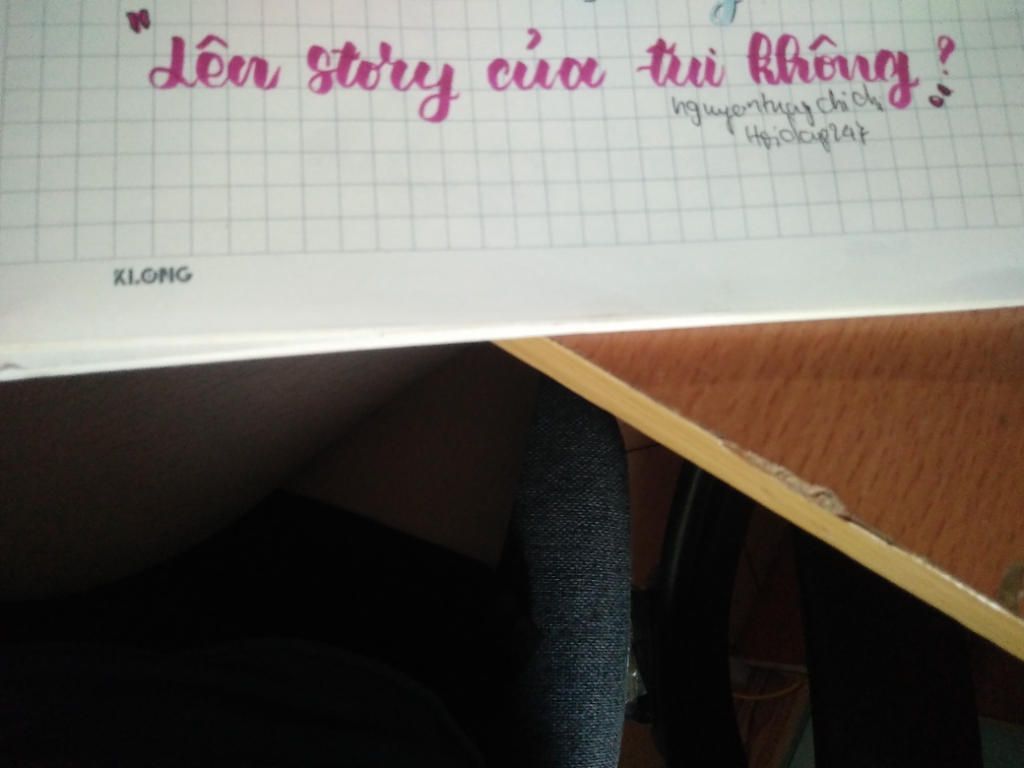 "Lên story của tui không?
nguyenthuychichi
Hoidap247
KLONG